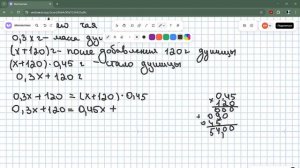 0,3х г - маса
(х+120) г - после добавления 120 г душицы
(х+120)·0,45 г - стало душицы
0,3х + 120 г
0,3х + 120 = (х+120)·0,45
0,3х + 120 = 0,45х +
0,45
× 120
000
+ 090
45
5400